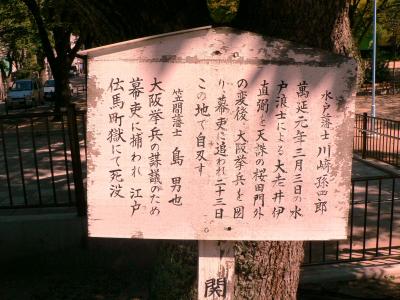 水戸藩士 川﨑孫四郎
萬延元年三月三日の水
戸浪士による大老井伊
直弼を天誅の桜田門外
の変後、大阪挙兵を図
り、幕吏に追われ二十三日
この地で自刃す
笠間藩士 島 男也
大阪挙兵の謀議のため
幕吏に捕われ 江戸
伝馬町獄にて死没
関